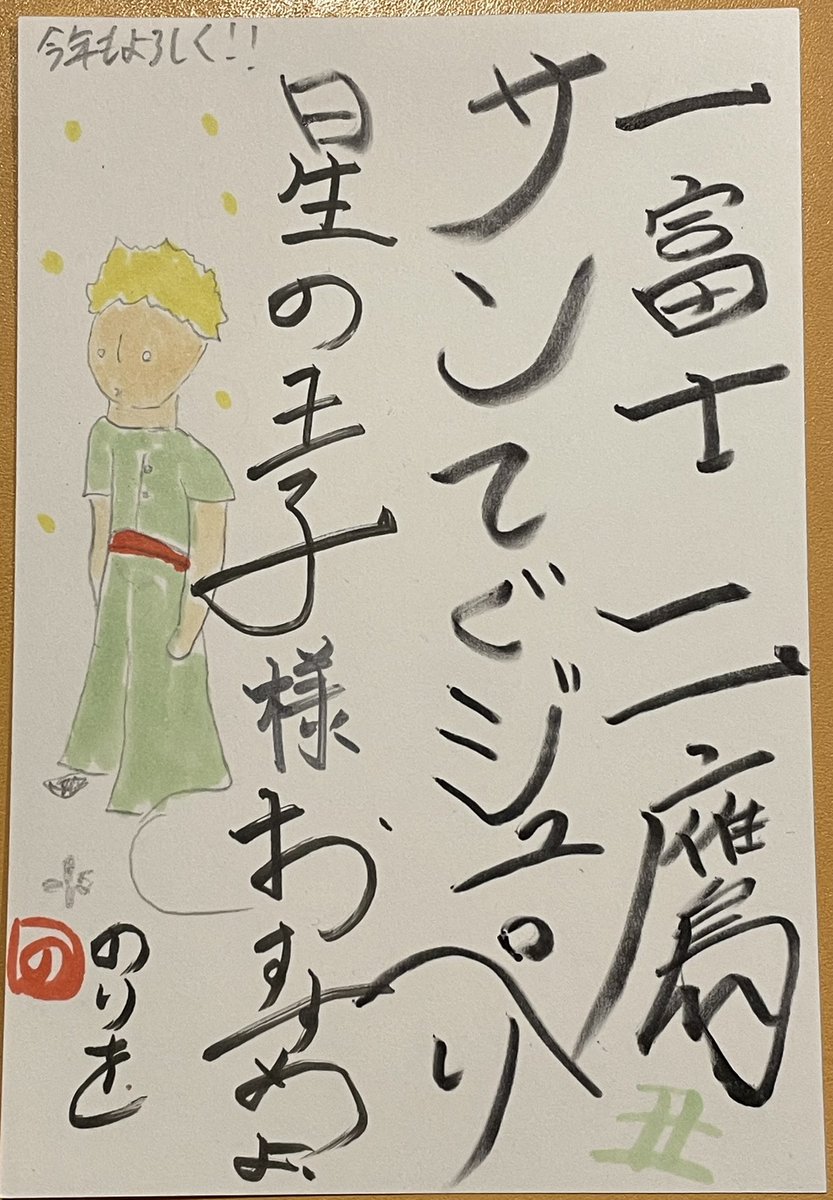 今年もよろしく!!
一富士 二鷹
サンてぐジュペリ
星の王子様おすすめよ
丑
のりを
の